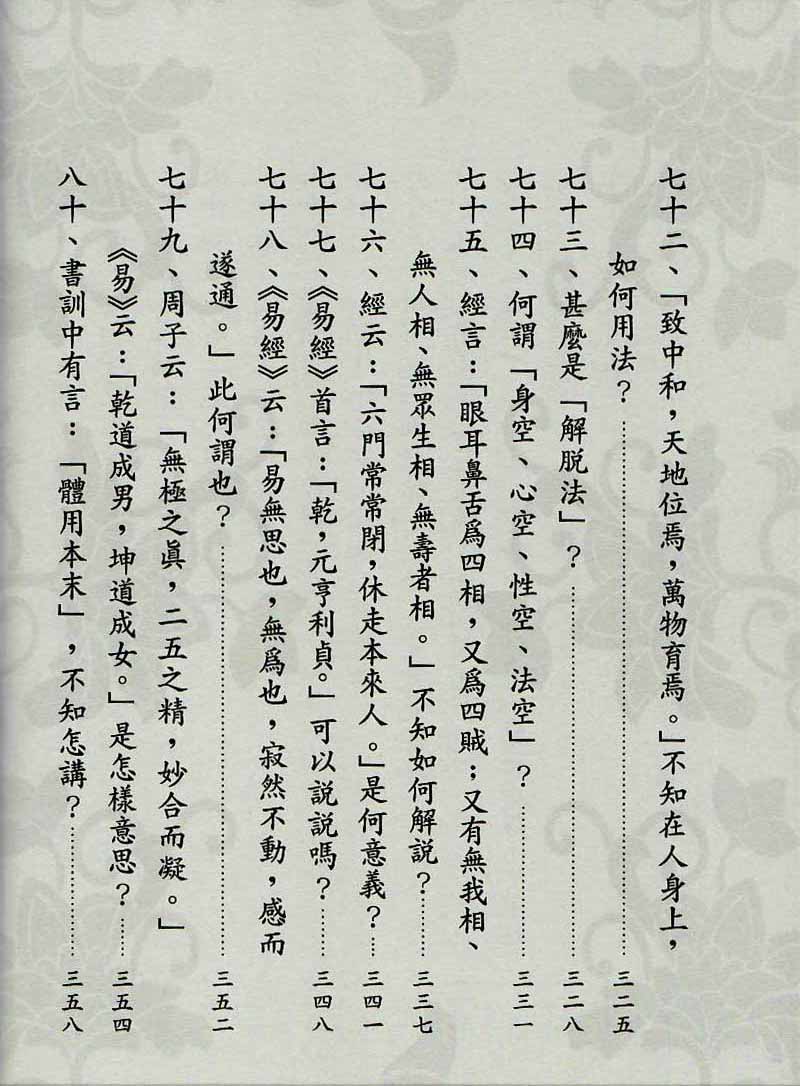 七十二、「致中和，天地位焉，萬物育焉。」不知在人身上，
如何用法？……三二五
七十三、甚麼是「解脫法」？……三二八
七十四、何謂「身空、心空、性空、法空」？……三三一
七十五、經言：「眼耳鼻舌爲四相，又爲四賊；又有無我相、
無人相、無眾生相、無壽者相。」不知如何解說？……三三七
七十六、經云：「六門常常閉，休走本來人。」是何意義？……三四一
七十七、《易經》首言：「乾，元亨利貞。」可以說說嗎？……三四八
七十八、《易經》云：「易無思也，無爲也，寂然不動，感而
遂通。」此何謂也？……三五二
七十九、周子云：「無極之眞，二五之精，妙合而凝。」
《易》云：「乾道成男，坤道成女。」是怎樣意思？……三五四
八十、書訓中有言：「體用本末」，不知怎講？……三五八